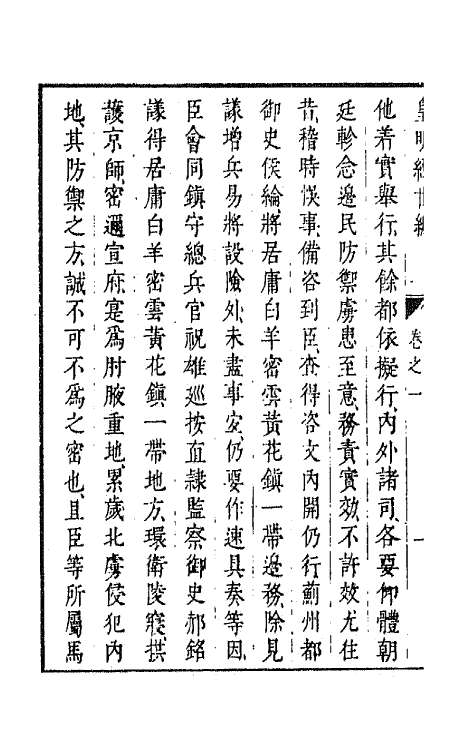 皇明經世編
卷之一
一
他着實舉行其餘都依擬行內外諸司各要仰體朝
廷軫念邊民防禦虜患至意務責實效不許效尤往
昔稽時悮事備咨到臣查得咨文內開仍行薊州都
御史侯綸將居庸白羊密雲黃花鎮一帶邊務除見
議增兵易將設險外未盡事宐仍要作速具奏等因
臣會同鎮守總兵官祝雄巡按直隷監察御史郝銘
議得居庸白羊密雲黃花鎮一帶地方環衛陵寢拱
護京師密邇宣府寔爲肘腋重地累歲北虜侵犯內
地其防禦之方誠不可不爲之密也且臣等所屬馬